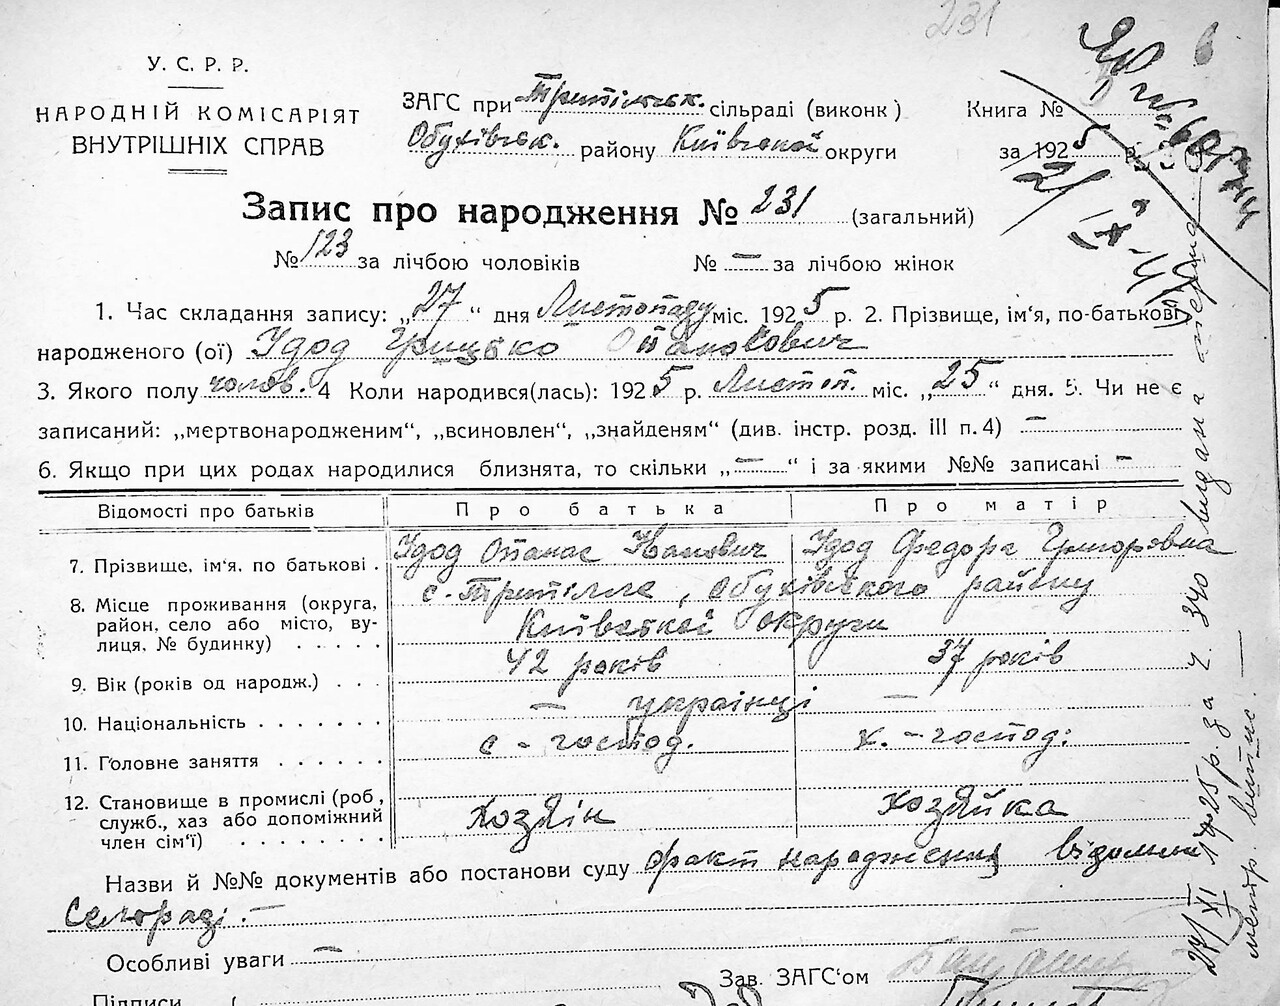 231
У. С. Р. Р.
НАРОДНІЙ КОМІСАРІЯТ
ВНУТРІШНІХ СПРАВ
ЗАГС при Трипільськ. сільраді (виконк)
Обухівськ. району Київської округи
Книга №
за 1925 р.
Запис про народження № 231 (загальний)
№ 123 за лічбою чоловіків № — за лічбою жінок
1. Час складання запису: „27“ дня Листопаду міс. 1925 р. 2. Прізвище, ім'я, по-батькові
народженого (ої) Удод Грицько Опанасович
3. Якого полу чолов. 4 Коли народився(лась): 1925 р. Листоп. міс. „25“ дня. 5. Чи не є
записаний: „мертвонародженим“, „всиновлен“, „знайденям“ (див. інстр. розд. III п. 4) —
6. Якщо при цих родах народилися близнята, то скільки „—“ і за якими №№ записані —
Відомості про батьків Про батька Про матір
7. Прізвище, ім'я, по батькові . Удод Опанас Іванович Удод Федора Григоровна
8. Місце проживання (округа, район, село або місто, вулиця, № будинку) . . . . . с. Трипілля, Обухівського району
Київської округи
9. Вік (років од народж.) . . . 42 років 37 років
10. Національність . . . . . . . — українці —
11. Головне заняття . . . . . . с - господ. х. - господ.
12. Становище в промислі (роб, служб., хаз або допоміжний член сім'ї) . . . . . . . Хозяїн Хозяйка
Назви й №№ документів або постанови суду факт народження відомий
Сельраді. —
Особливі уваги —
Зав. ЗАГС'ом
Підписи
27/XI 1925 р. за ч. 340 видана